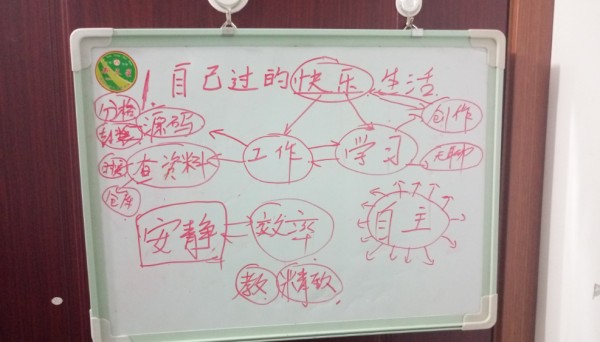 自己过的快乐生活
分格
源码
创作
工作
学习
无聊
查资料
仓库
安静
效率
自主
教
精致